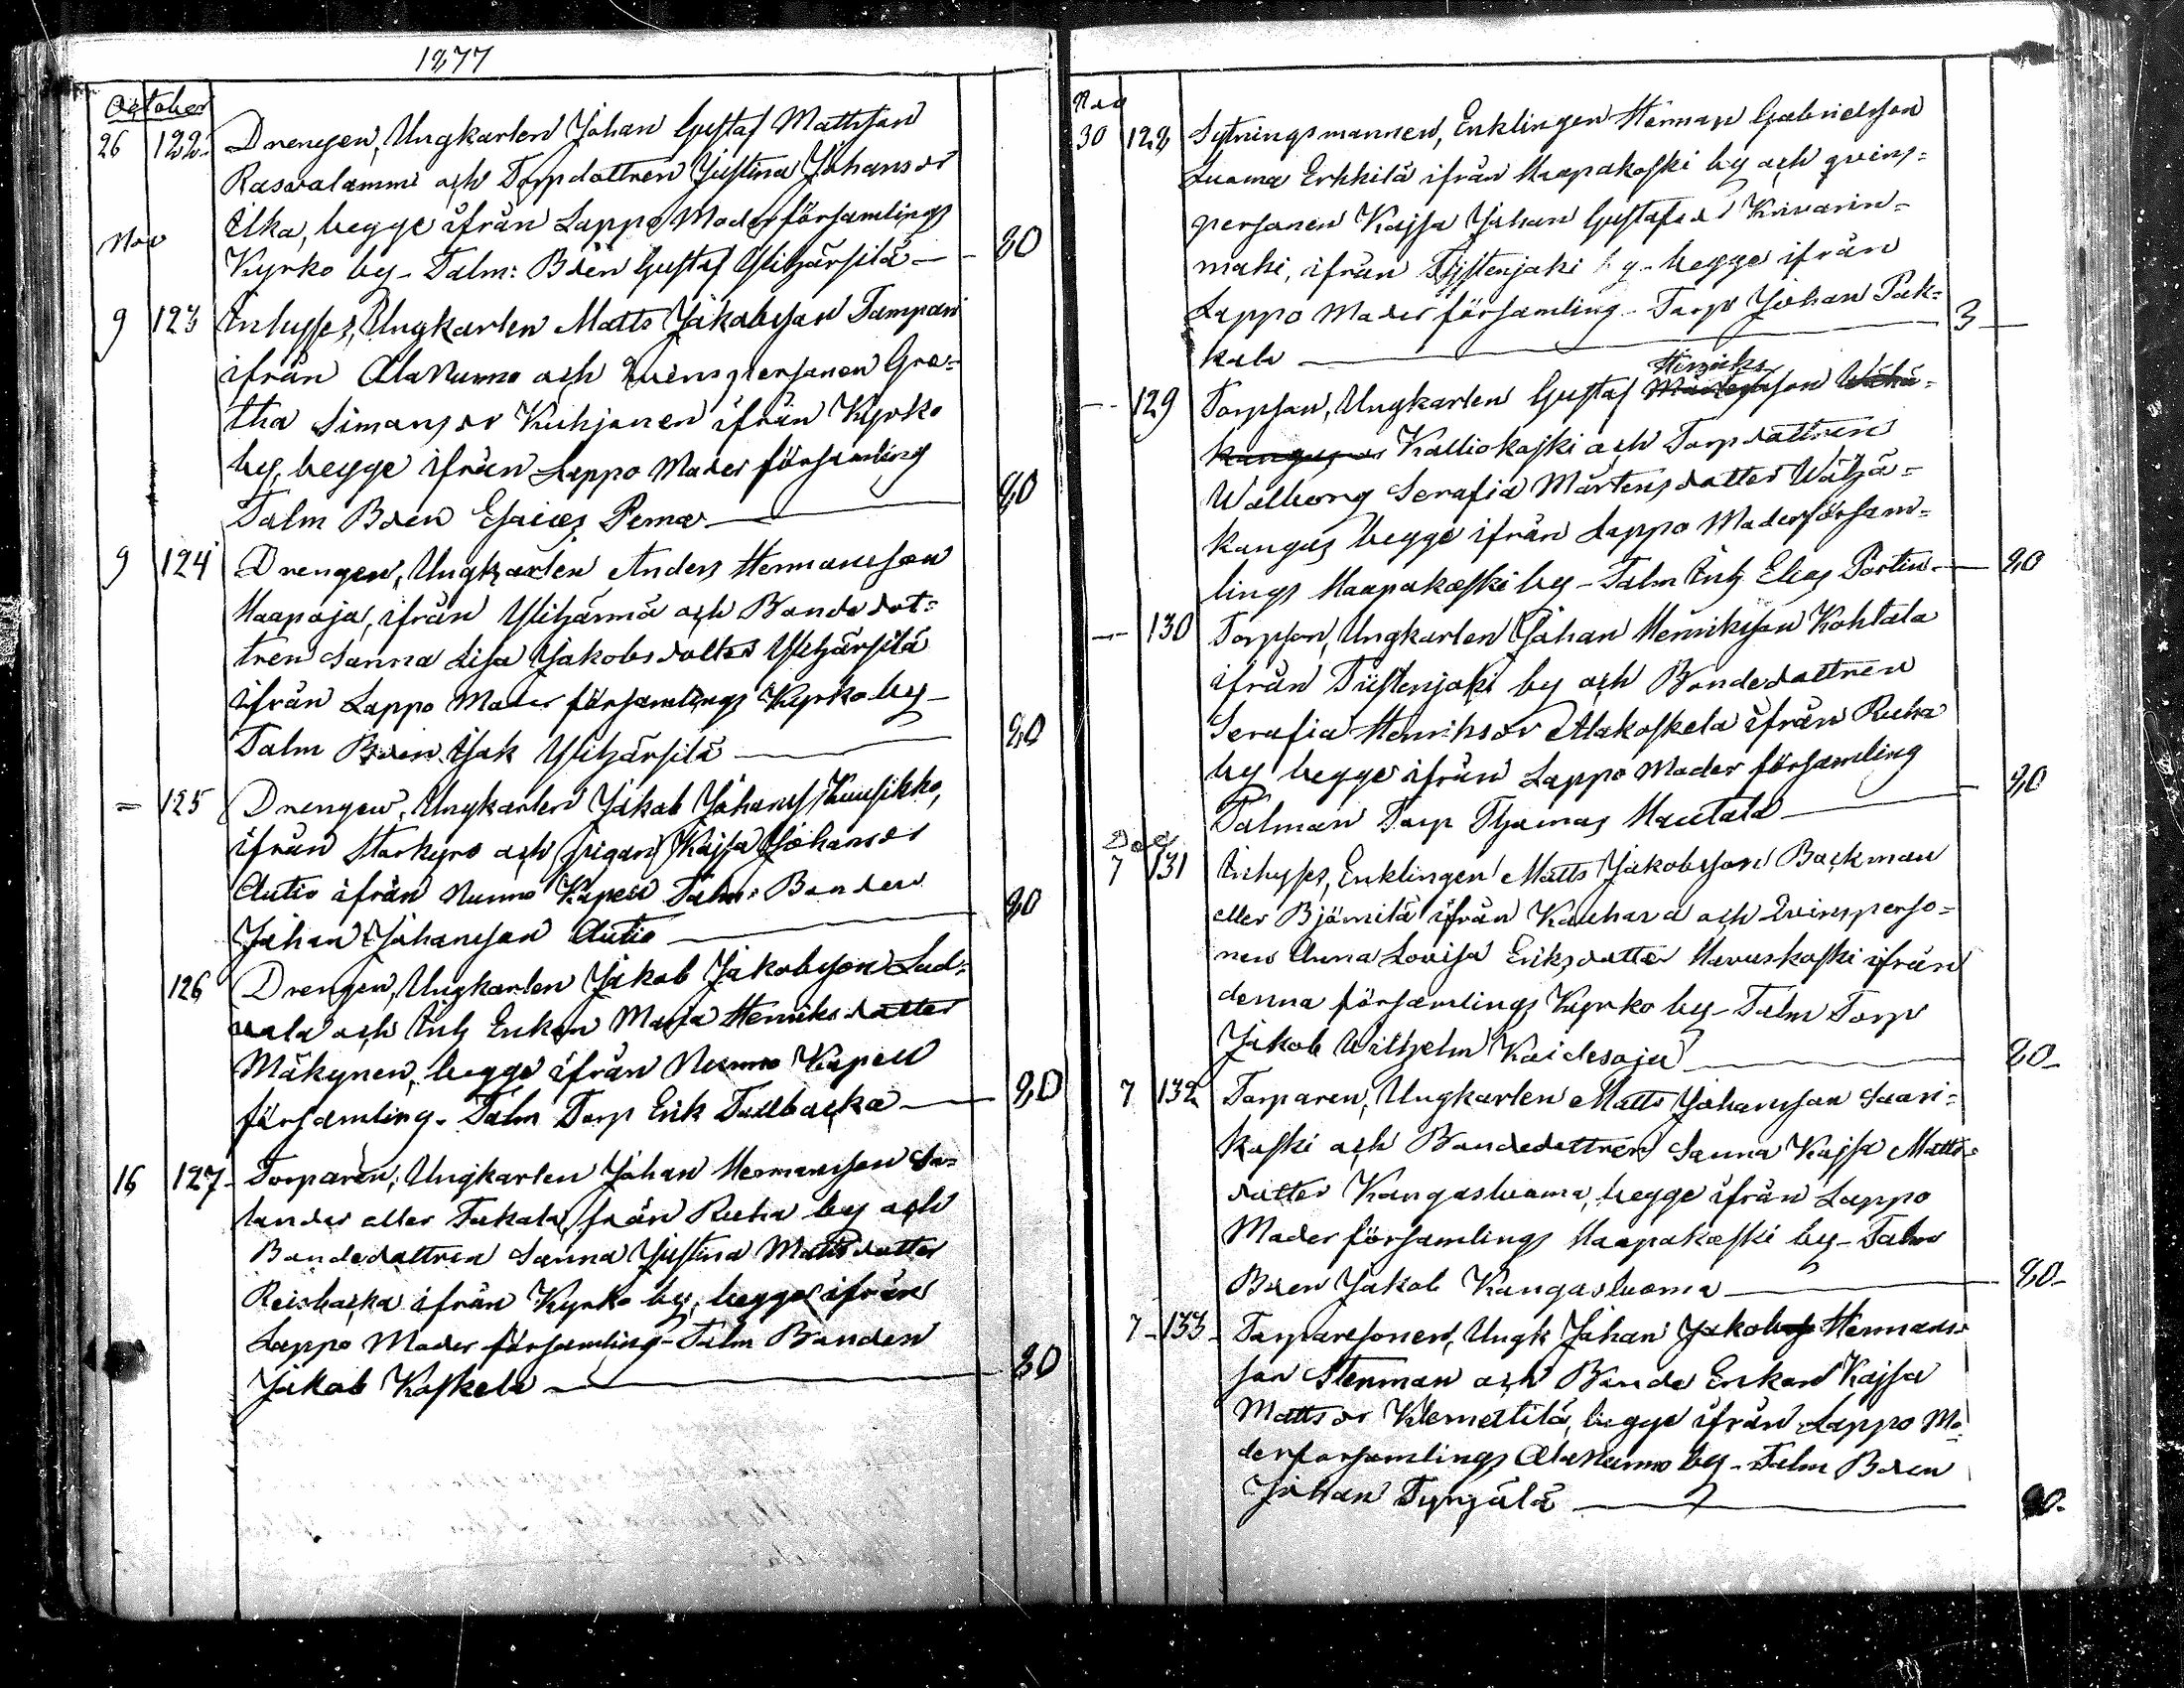 1877
October
26 122. Drengen, Ungkarlen Johan Gustaf Mattsson
Rasvalammi och Torpdottren Justina Johansdr
Ilka, begge ifrån Lappo Moderförsamlings
Nov
Kyrko by - Talm: Bden Gustaf Ylihärsilä — 80
9 123 Inhyses, Ungkarlen Matts Jakobsson Tampari
ifrån AlaNurmo och Qvinspersonen Gre=
tha Simonsdr Kuhjonen ifrån Kyrko
by, begge ifrån Lappo Moder församling
Talm Bden Esaias Perna — 80
9 124 Drengen, Ungkarlen Anders Hermansson
Haapoja, ifrån Ylihärmä och Bondedot=
tren Sanna Lisa Jakobsdotter Ylihärsilä
ifrån Lappo Moder församlings Kyrko by —
Talm Bden Isak Ylihärsilä — 80
= 125 Drengen, Ungkarlen Jakob Johanss Kuusikko,
ifrån Storkyro och Pigan Kajsa Johansdr
Autio ifrån Nurmo Kapell Talm: Bonden
Johan Johansson Autio — 80
126 Drengen, Ungkarlen Jakob Jakobsson Lad=
vala och Inh Enkan Maria Henriksdotter
Mäkynen, begge ifrån Nurmo Kapell
församling. Talm Torp Erik Tallbacka — 80
16 127 - Torparen, Ungkarlen Johan Hermansson Sa=
lander eller Takala från Ruha by och
Bondedottren Sanna Justina Mattsdotter
Reisbacka ifrån Kyrko by, begge ifrån
Lappo Moder församling - Talm Bonden
Jakob Koskela — 80
Nov
30 128 Sytningsmannen, Enklingen Herman Gabrielsson
Luoma Erkkilä ifrån Haapakoski by och qvins=
personen Kajsa Johan Gustafsd Knivarin=
mäki, ifrån Tiistenjoki by - begge ifrån
Lappo Moder församling - Torp Johan Pak=
kala — 3 —
Henriks
- - 129 Torpson, Ungkarlen Gustaf Mårtensson Wähä=
kangas Kalliokoski och Torpdottren
Walborg Serafia Mårtensdotter Wähä=
kangas begge ifrån Lappo Moderförsam=
lings Haapakoski by - Talm Inh Elias Portin — 80
- - 130 Torpson, Ungkarlen Johan Henriksson Kohtala
ifrån Tiistenjoki by och Bondedottren
Serafia Henriksdr Alakoskela ifrån Ruha
by begge ifrån Lappo Moder församling
Talman Torp Thomas Hautala — 80
Dec
7 131 Inhyses, Enklingen Matts Jakobsson Backman
eller Björnilä ifrån Kauhava och Qvinsperso=
nen Anna Lovisa Eriksdotter Havuskoski ifrån
denna församlings Kyrko by - Talm Torp
Jakob Wilhelm Kaidesoja — 80 -
7 132 Torparen, Ungkarlen Matts Johansson Saari=
koski och Bondedottren Sanna Kajsa Matts=
dotter Kangasluoma, begge ifrån Lappo
Moder församlings Haapakoski by - Talm
Bden Jakob Kangasluoma — 80 -
7 - 133 - Torparesonen, Ungk Johan Jakobss Hermans=
son Stenman och Bonde Enkan Kajsa
Mattsdr Klemettilä, begge ifrån Lappo Mo=
derförsamlings AlaNurmo by - Talm Bden
Johan Tyrjälä — 80 -